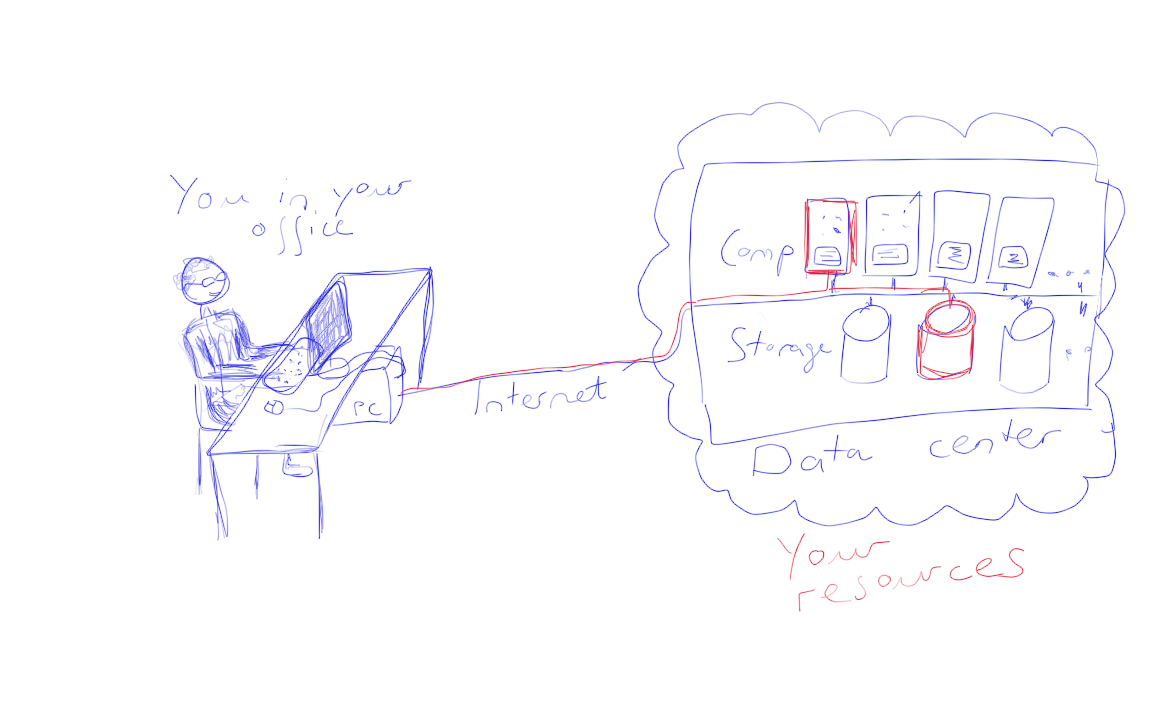 You in your
office
PC
Internet
Comp
Storage
Data center
Your
resources